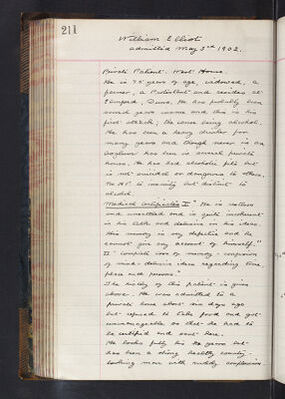 211
William Elliot
admitted May 3rd 1902.
Private Patient. West House.
He is 75 years of age, widowed, a
farmer, a Protestant and resides at
Down. He has probably been
several years insane and this is his
first attack, the cause being alcohol.
He has been a heavy drinker for
many years and though never in an
asylum has been in several private
houses. He has had alcoholic fits but
is not suicidal or dangerous to others.
No H.P. to insanity but distinct to
alcohol.
Medical Certificates I "He is restless
and unsettled and is quite incoherent
in his talk and delusive in his ideas.
His memory is very defective and he
cannot give any account of himself."
II "Complete loss of memory - confusion
of mind - delusive ideas regarding time
place and persons"
The history of this patient is given
above. He was admitted to a
private home about six days ago
but refused to take food and got
unmanageable so that he had to
be certified and sent here.
He looks fully his 75 years but
has been a strong healthy country-
looking man with ruddy complexion.